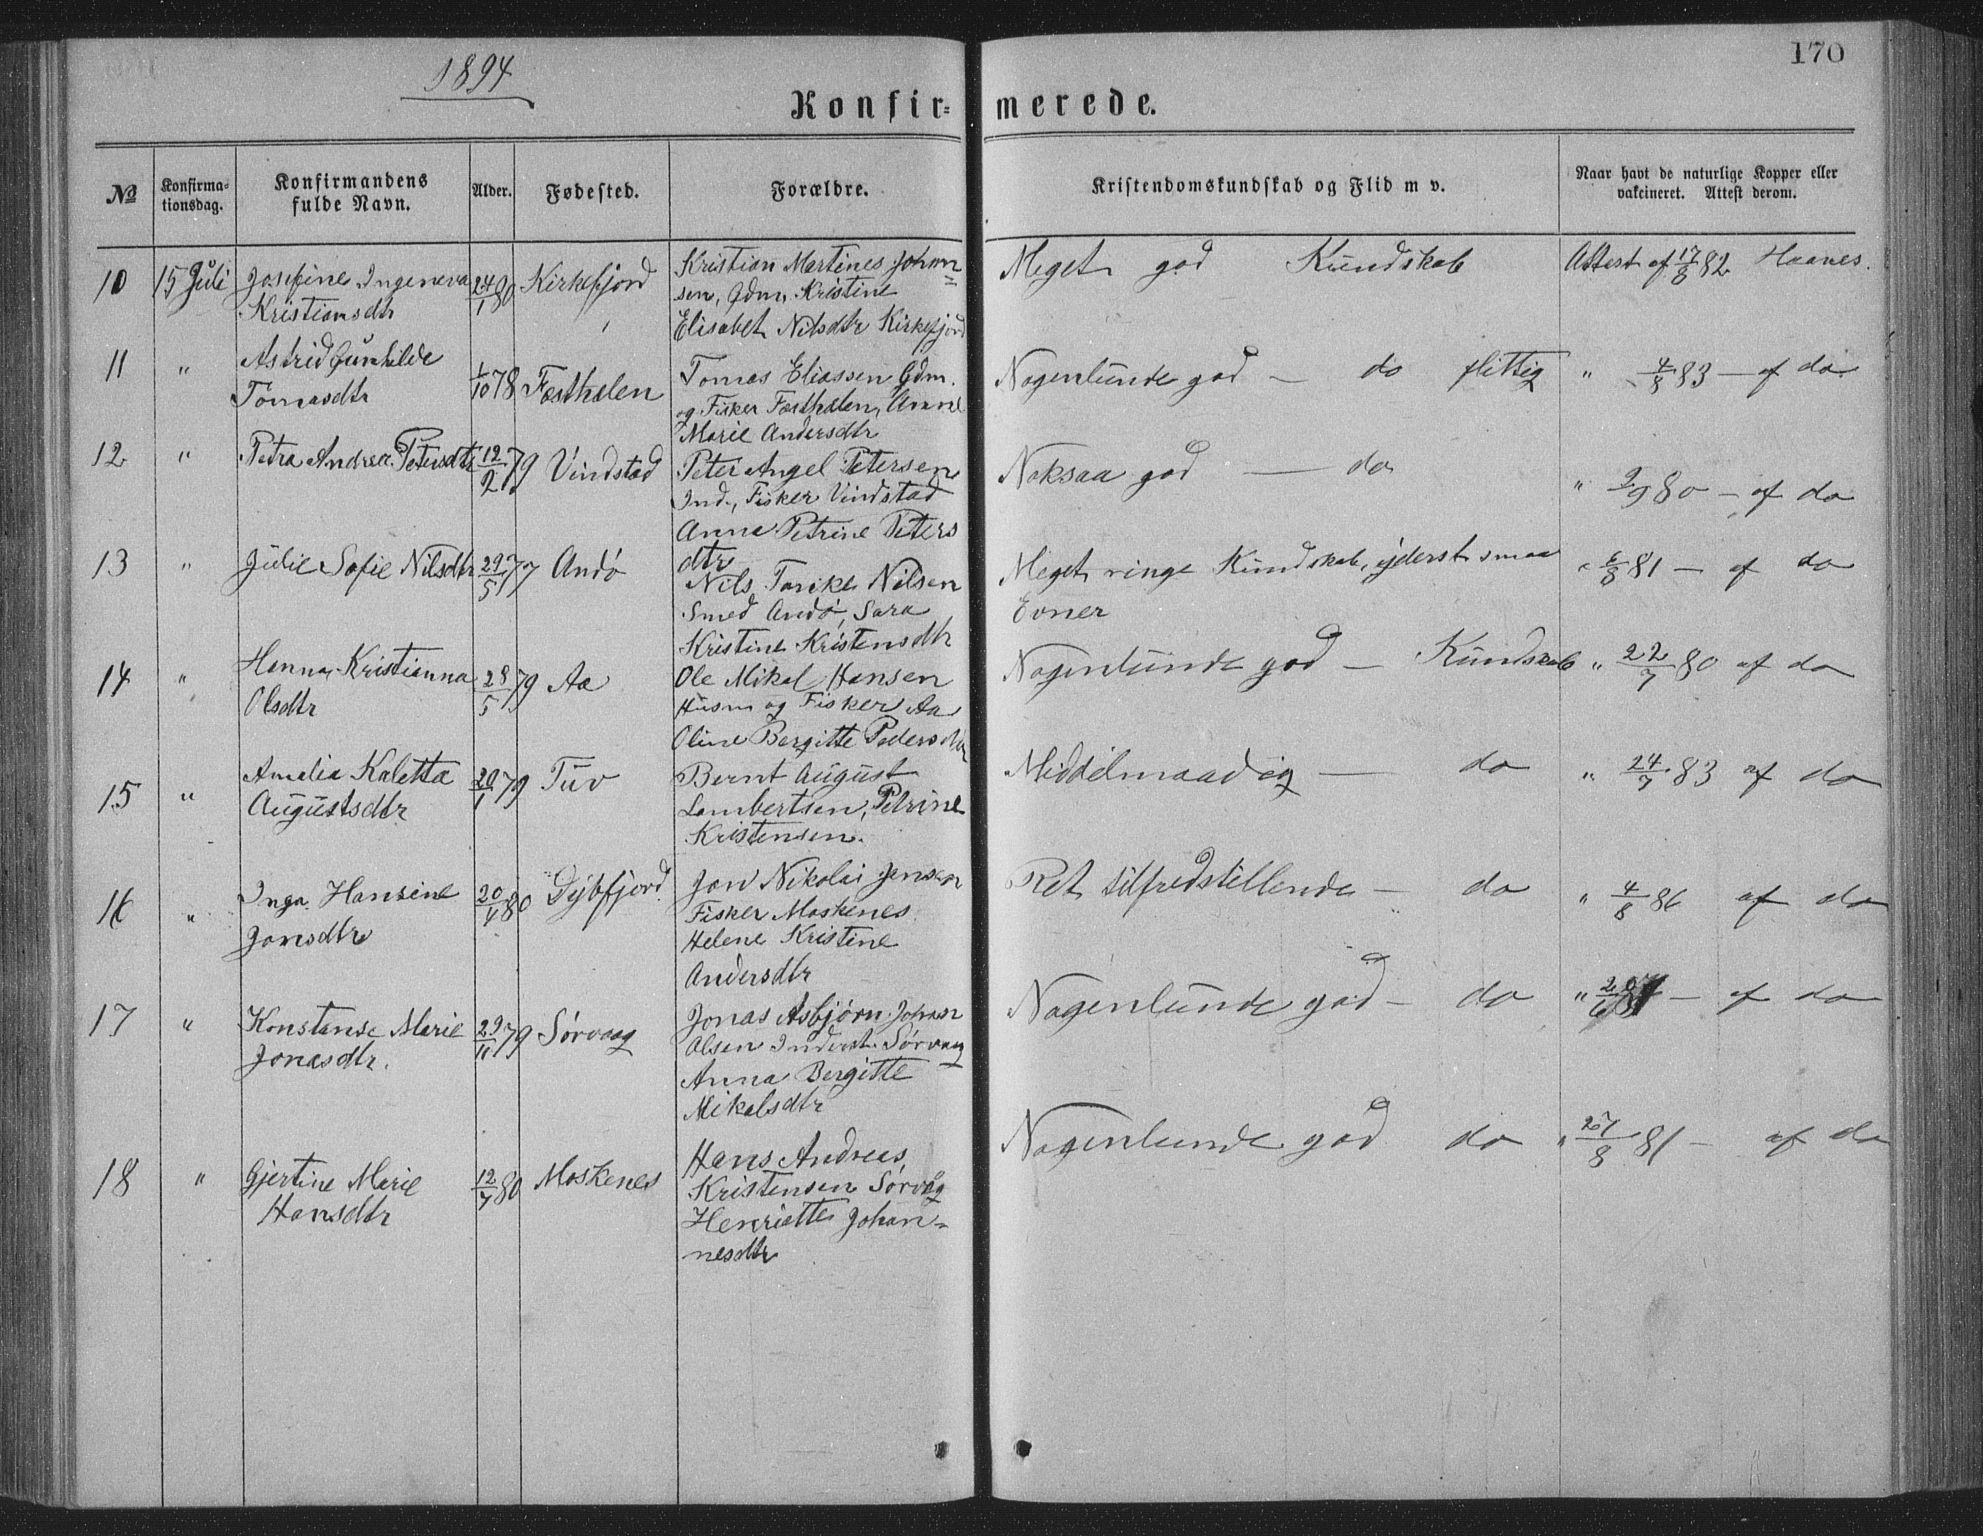 1894
170
Konfir-merede.
№ Konfirma-tionsdag. Konfirmandens fulde Navn. Alder. Fødested. Forældre. Kristendomskundskab og Flid m v. Naar havt de naturlige Kopper eller vakcineret. Attest derom.
10 15 Juli Josefine Ingeneva 24/1 80 Kirkefjord Kristian Martines Johan= Meget god Kundskab Attest af 17/8 82 Haanes.
Kristiansdtr sen, Gdm, Kristine
Elisabet Nilsdtr Kirkefjord
11 " Astrid Gunhilde 1/10 78 Fæsthælen Tomas Eliassen Gdm. Nogenlunde god — do flittig " 4/8 83 — af do
Tomasdtr og Fisker Fæsthælen, Anne
Marie Andersdtr
12 " Petra Andrea Petersdtr 12/2 79 Vindstad Peter Angel Petersen Noksaa god — do " 9/9 80 — af do
Ind., Fisker Vindstad
Anna Petrine Peters
dtr
13 " Julie Sofie Nilsdtr 29/5 77 Andø Nils Tarike Nilsen Meget ringe Kundskab, yderst smaa " 6/8 81 — af do
Smed Andø, Sara Evner
Kristine Kristensdtr
14 " Hanna Kristianna 28/5 79 Aa Ole Mikal Hansen Nogenlunde god — Kundskab " 22/7 80 af do
Olsdtr Husm og Fisker Aa
Oline Bergitte Pedersdtr
15 " Amalia Kaletta 20/1 79 Tuv Bernt August Middelmaadig — do " 24/7 83 af do
Augustsdtr Lambertsen, Petrine
Kristensen.
16 " Inga Hansine 20/4 80 Dybfjord Jon Nikolai Jensen Ret tilfredstillende — do " 4/8 86 af do
Jonsdtr Fisker Moskenes
Helene Kristine
Andersdtr
17 " Konstanse Marie 29/11 79 Sørvaag Jonas Asbjørn Johan Nogenlunde god — do " — af do
Jonasdtr. Olsen Inderst Sørvaag
Anna Bergitte
Mikalsdtr
18 " Gjertine Marie 12/7 80 Moskenes Hans Andreas Nogenlunde god do " 27/8 81 — af do
Hansdtr Kristensen Sørvåg
Henriette Johan-
nesdtr